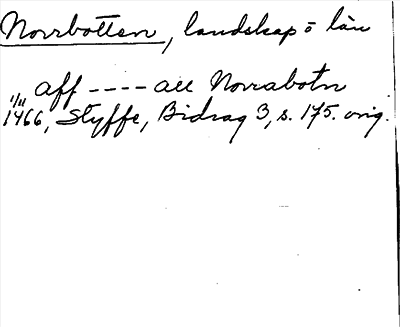 Norrbotten, landskap o län
aff ---- all Norrabotn
1/11 1466, Styffe, Bidrag 3, s. 175. orig.